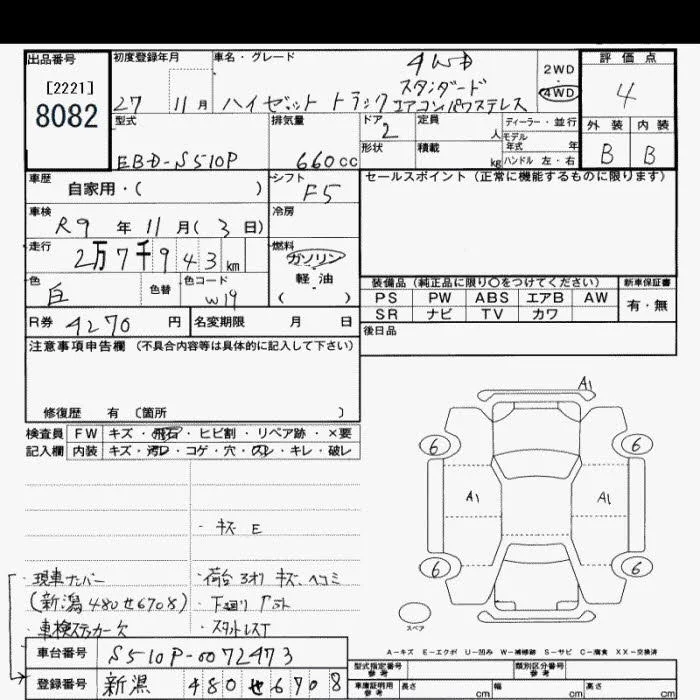 出品番号
[2221]
8082
初度登録年月
27 11月
車名・グレード
4WD
スタンダード
ハイゼット トラック エアコンパワステレス
2WD
4WD
評価点
4
外装 内装
B B
型式
EBD-S510P
排気量
660cc
ドア
2
定員
人
形状
積載
kg
ディーラー・並行
モデル
年式 年
ハンドル 左・右
車歴
自家用・( )
シフト
F5
セールスポイント（正常に機能するものに限ります）
車検
R9 年 11 月( 3 日)
冷房
走行
2万7千943km
燃料
ガソリン
軽油
( )
色
白
色替
色コード
W19
装備品（純正品に限り○をつけてください）
新車保証書
PS PW ABS エアB AW
SR ナビ TV カワ
有・無
R券 4270 円
名変期限 月 日
後日品
注意事項申告欄（不具合内容等は具体的に記入して下さい）
修復歴 有〔箇所 〕
検査員 FW キズ・飛石・ヒビ割・リペア跡・×要
記入欄 内装 キズ・汚レ・コゲ・穴・スレ・キレ・破レ
A1
6 6
A1 A1
6 6
スペア
・キズ E
・現車ナンバー
(新潟480せ6708)
・車検ステッカー欠
・荷台3オリ キズ、ヘコミ
・下廻りサビ
・スタットレスT
A-キズ E-エクボ U-凹み W-補修跡 S-サビ C-腐食 XX-交換済
車台番号 S510P-0072473
登録番号 新潟 480せ6708
型式指定番号
参考
類別区分番号
参考
車庫証明用
参考
長さ cm 幅 cm 高さ cm